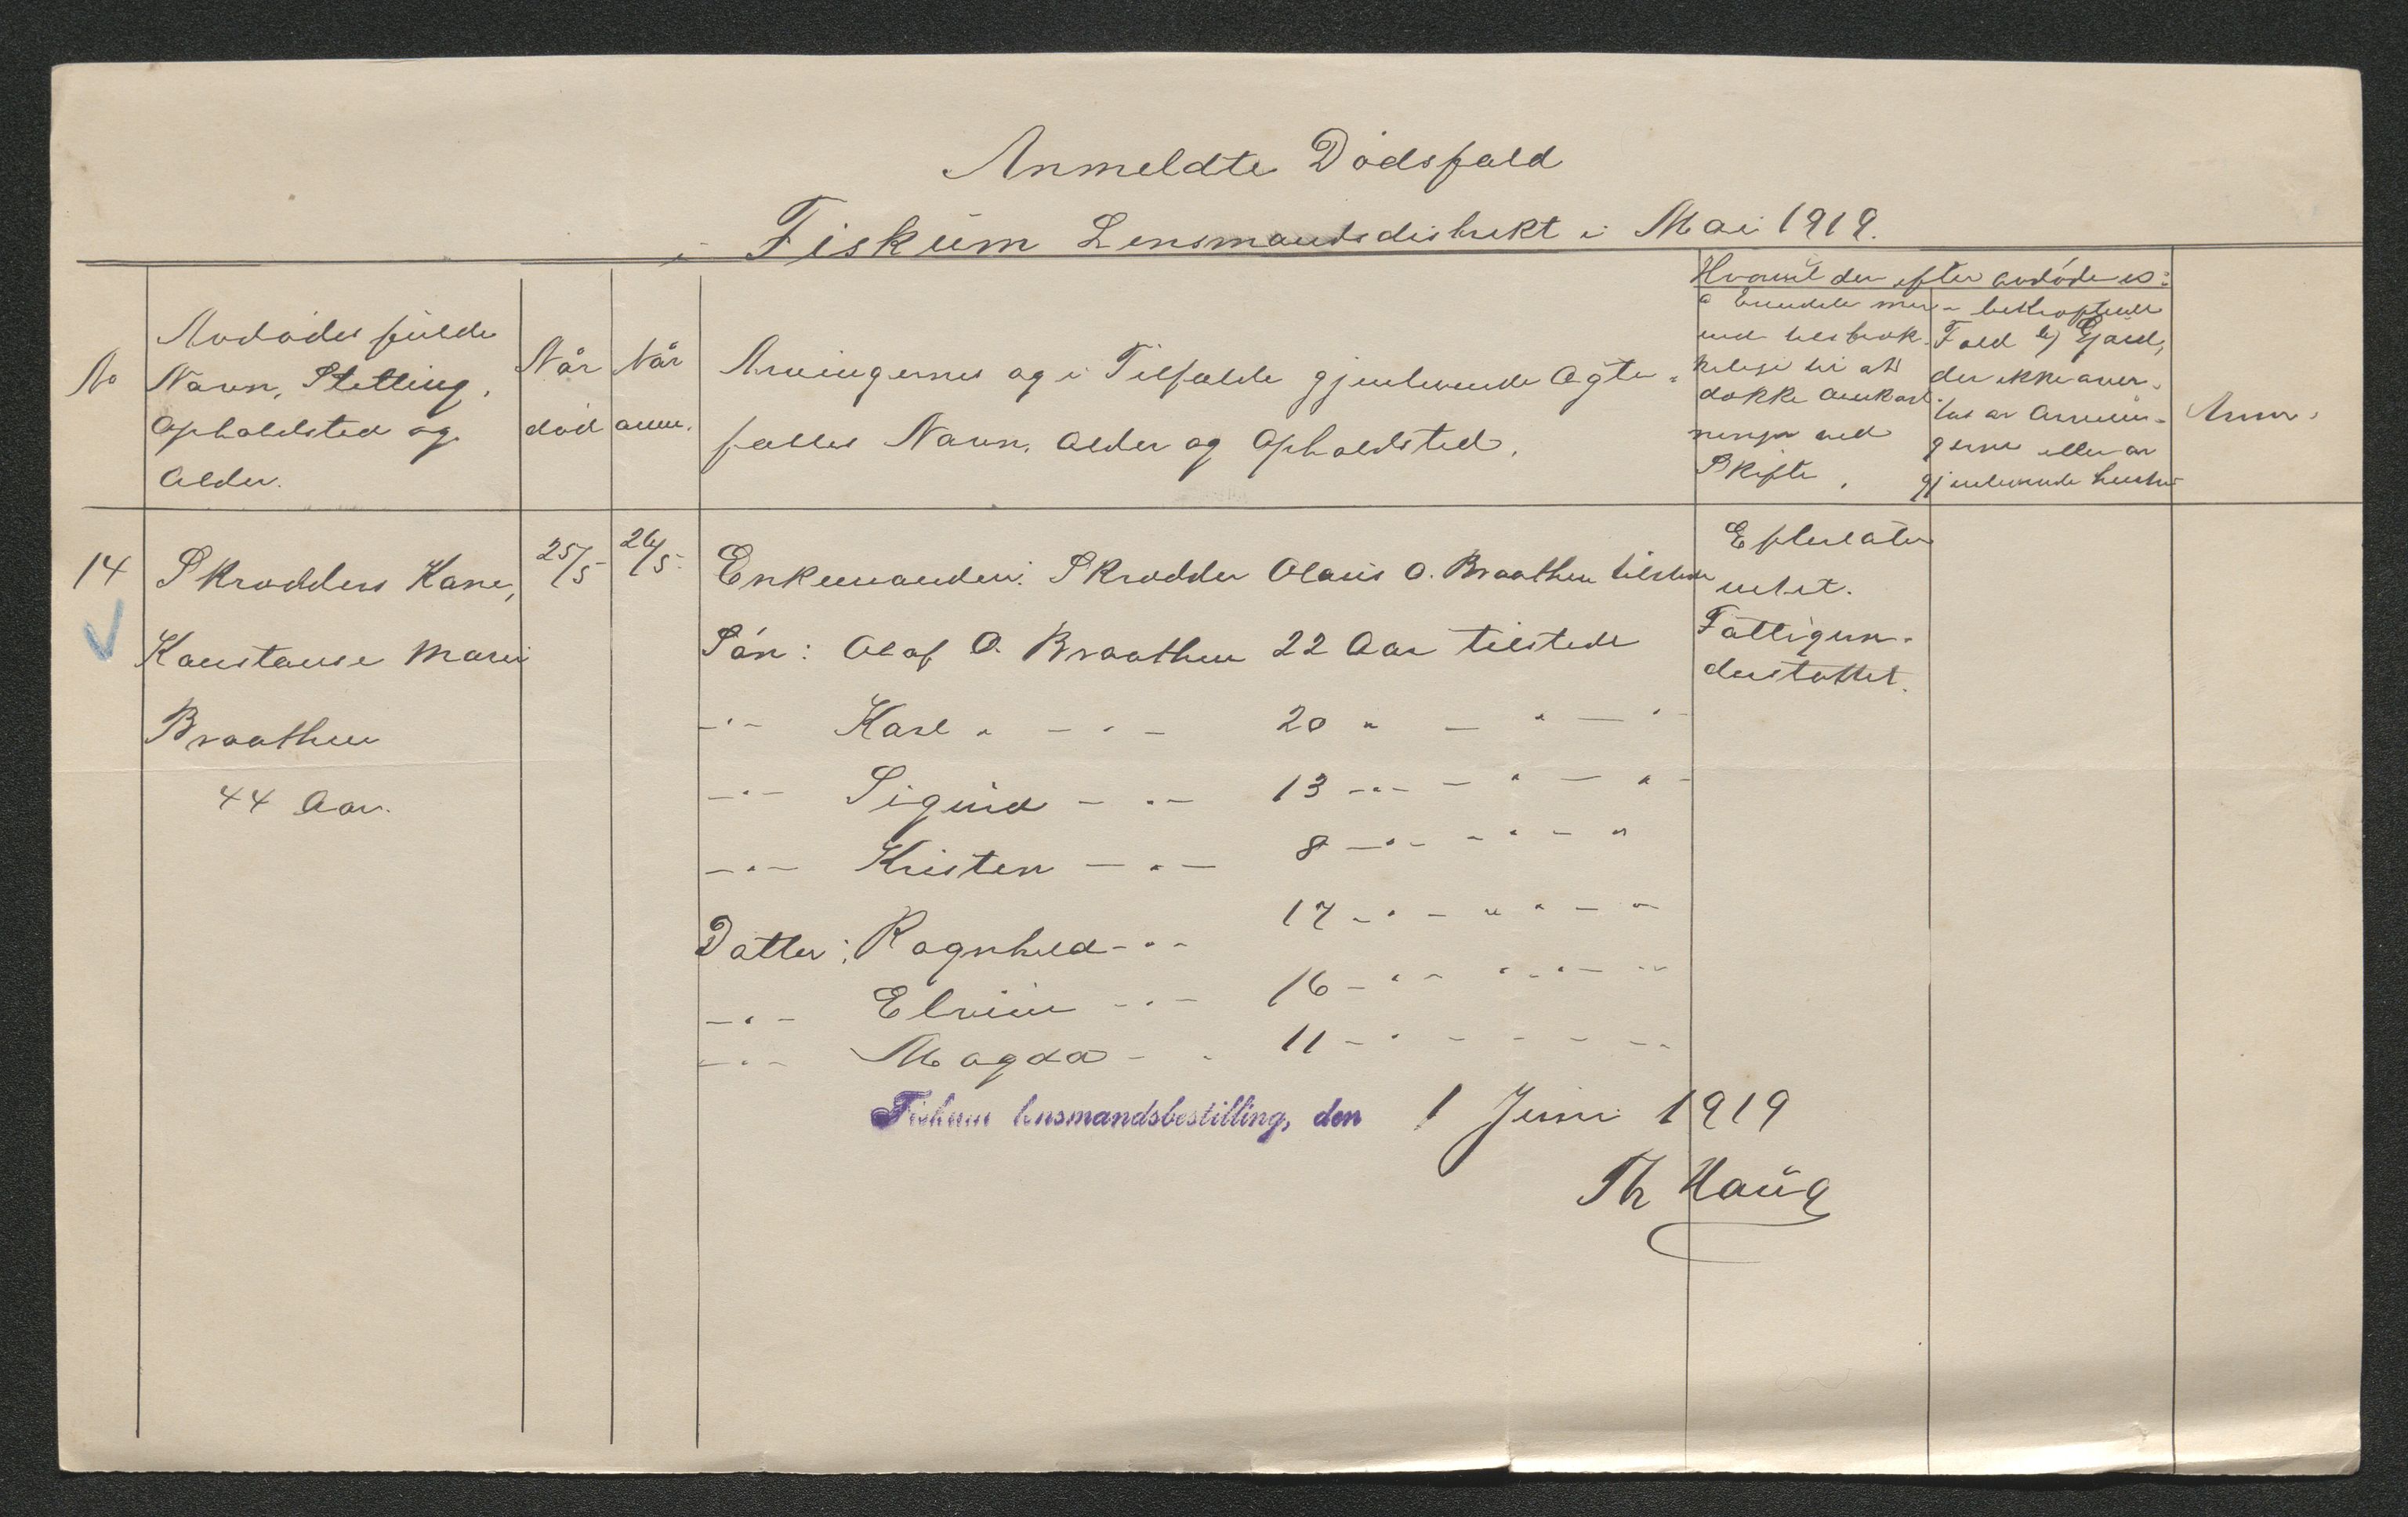 Anmeldte Dødsfald
i Fiskum Lensmandsdistrikt i Mai 1919.
No
Avdødes fulde
Navn, Stilling,
Opholdsted og
Alder.
Når
død
Når
anm.
Arvingernes og i Tilfælde gjenlevende Ægte-
fælles Navn, Alder og Opholdsted.
Hvorvidt der efter avdøde er:
a Eiendele mer
end tilstræk-
kelige til at
dække Omkost-
ninger ved
Skifte,
i bekræftende
Fald b) Gjæld,
der ikke over-
tas av Arvin-
gerne eller av
gjenlevende
Anm.
14
Skrædders Kone,
Konstanse Marie
Braathen
44 Aar.
25/5
26/5.
Enkemanden: Skrædder Olaus O. Braathen tilstede
Søn: Olaf O. Braathen 22 Aar tilstede
-"- Karl " - " - 20 " - " - " -
-"- Sigurd - " - 13 -"- - " - " -
-"- Kristen - " - 8 -"- - " - "
Datter: Ragnhild -"- 17 -"- " " - "
-"- Elvine -"- 16 -"- " - " - "
-"- Magda - " 11 -"- - - - -
Efterlater
intet.
Fattigun-
derstøttet.
Fiskum lensmandsbestilling, den 1 Juni 1919
Th Haug